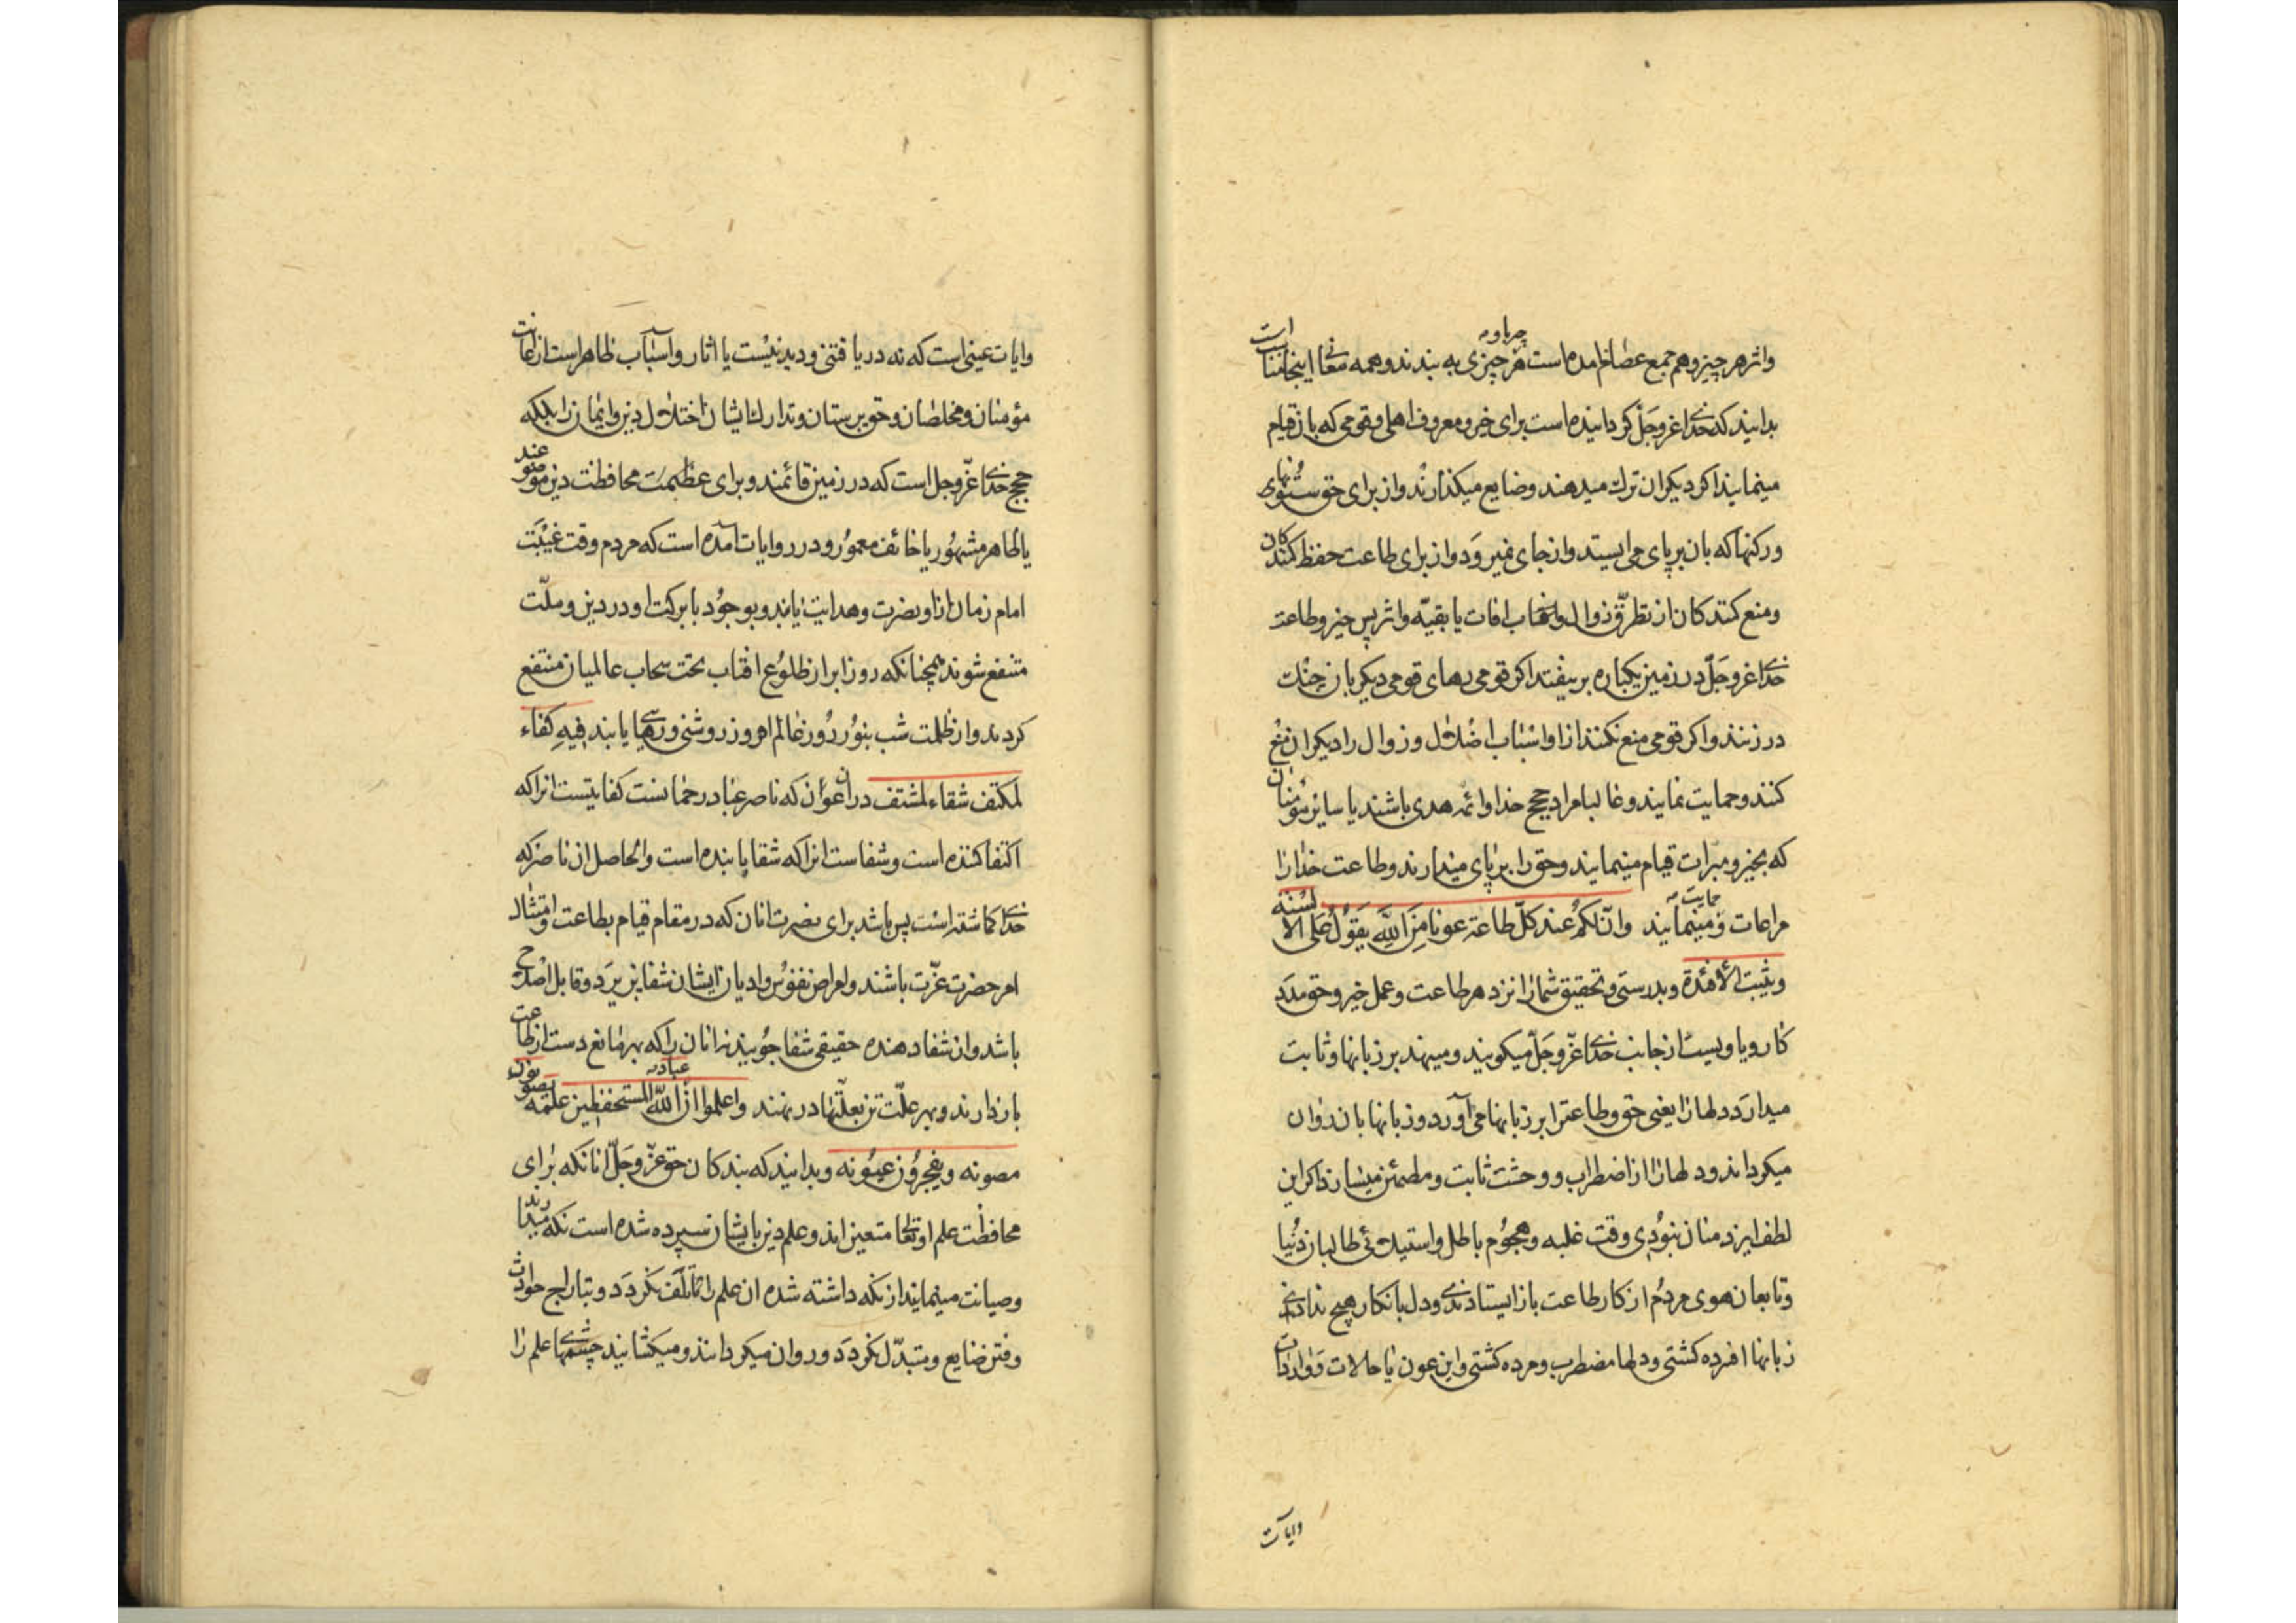 واثر هر چیز و هم جمع عصا خ امده است هر چیزی به بندند و همه معانی اینجا مناسب است
چرباو
بدانید که خدای عز و جل کردانیده است برای خیر و معروف اهلی و قومی که بان قیام
مینمایند اکر دیکران ترك میدهند و ضایع میکذارند و از برای حق ستونهای
ورکنها که بان بر پای می ایستد و از جای نمیرود و از برای طاعت حفظ کنندکان
ومنع کنندکان از تطرق زوال و ذهاب افات یا بقیه واثر پس خیر و طاعت
خدای عز وجل در زمین یکباره بر نیفتد اکر قومی رها ی قومی دیکر بان چنك
در زنند و اکر قومی منع نکنند از او اسباب اضلال و زوال را دیکران منع
کنند و حمایت نمایند و غالبا مراد حجج خدا و ائمه هدی باشند یا سایر مؤمنان
که بخیر و مبرات قیام مینمایند و حق را بر پای میدارند و طاعت خدا را
مراعات و حمایت مینمایند وان لکم عند کل طاعة عونا من الله یقول علی الالسنة
ویثبت الافئدة و بدرستی و تحقیق شما را نزد هر طاعت و عمل خیر و حق مدد
کار و یاوریست از جانب خدای عز وجل میکویند و مینهد بر زبانها و ثابت
میدارد دلها را یعنی حق و طاعت را بر زبانها می آورد و زبانها بان روان
میکرداند و دلها را از اضطراب و وحشت ثابت و مطمئن میسازد اکر این
لطف ایزد منان نبودی وقت غلبه و هجوم باطل و استیلائی طالبان دنیا
وتابعان هوی مردم از کار طاعت باز ایستادندی و دل بانکار هیچ ندادندی
زبانها افرده کشتی و دلها مضطرب و مرده کشتی و این عون یا حالات و واردات
وایات
وایات عینی است که نه در یافتنی و دیدنیست یا اثار و اسباب ظاهر است از اعانت
مؤمنان و مخلصان و حق پرستان و تدارك ایشان اختلال دین و ایمان را بلکه
حجج خدای عز وجل است که در زمین قائمند و برای عظیمت محافظت دین موضوعند
یا ظاهر مشهور یا خائف معمور و در روایات آمده است که مردم وقت غیبت
امام زمان از او نصرت و هدایت یابند و بوجود با برکت او در دین و ملت
متنفع شوند همچنانکه روز ابر از طلوع افتاب تحت سحاب عالمیان منتفع
کردند و از ظلمت شب بنور روز عالم افروز روشنی و رهایی یابند فیه کفاء
لمکتف شفاء لمشتف در ان اعوان که ناصر عباد رحمانست کفایتیست انرا که
اکتفا کننده است و شفاست انرا که شفا یابنده است والحاصل ان ناصر که
خدای کماشته است پس باشد برای نصرت انان که در مقام قیام بطاعت و امتثال
امر حضرت عزت باشند و امراض نفوس و ادیان ایشان شفا پذیرد و قابل اصلاح
باشد و ان شفا دهنده حقیقی شفا جویند نه انان را که بهر مانع دست از طاعت
بازدارند و بهر علت تن بعلتها در نهند واعلموا ان عباد الله المستحفظین علمه یصونون
مصونه ویفجرون عیونه و بدانید که بندکان حق عز وجل انانکه برای
محافظت علم او تعالی متعین اند و علم دین بایشان سپرده شده است نکه میدارند
وصیانت مینمایند از نکه داشته شده ان علم را تا تلف نکردد و بتاراج حوادث
وفتن ضایع و متبدل نکردد و روان میکردانند و میکشانید چشمهای علم را